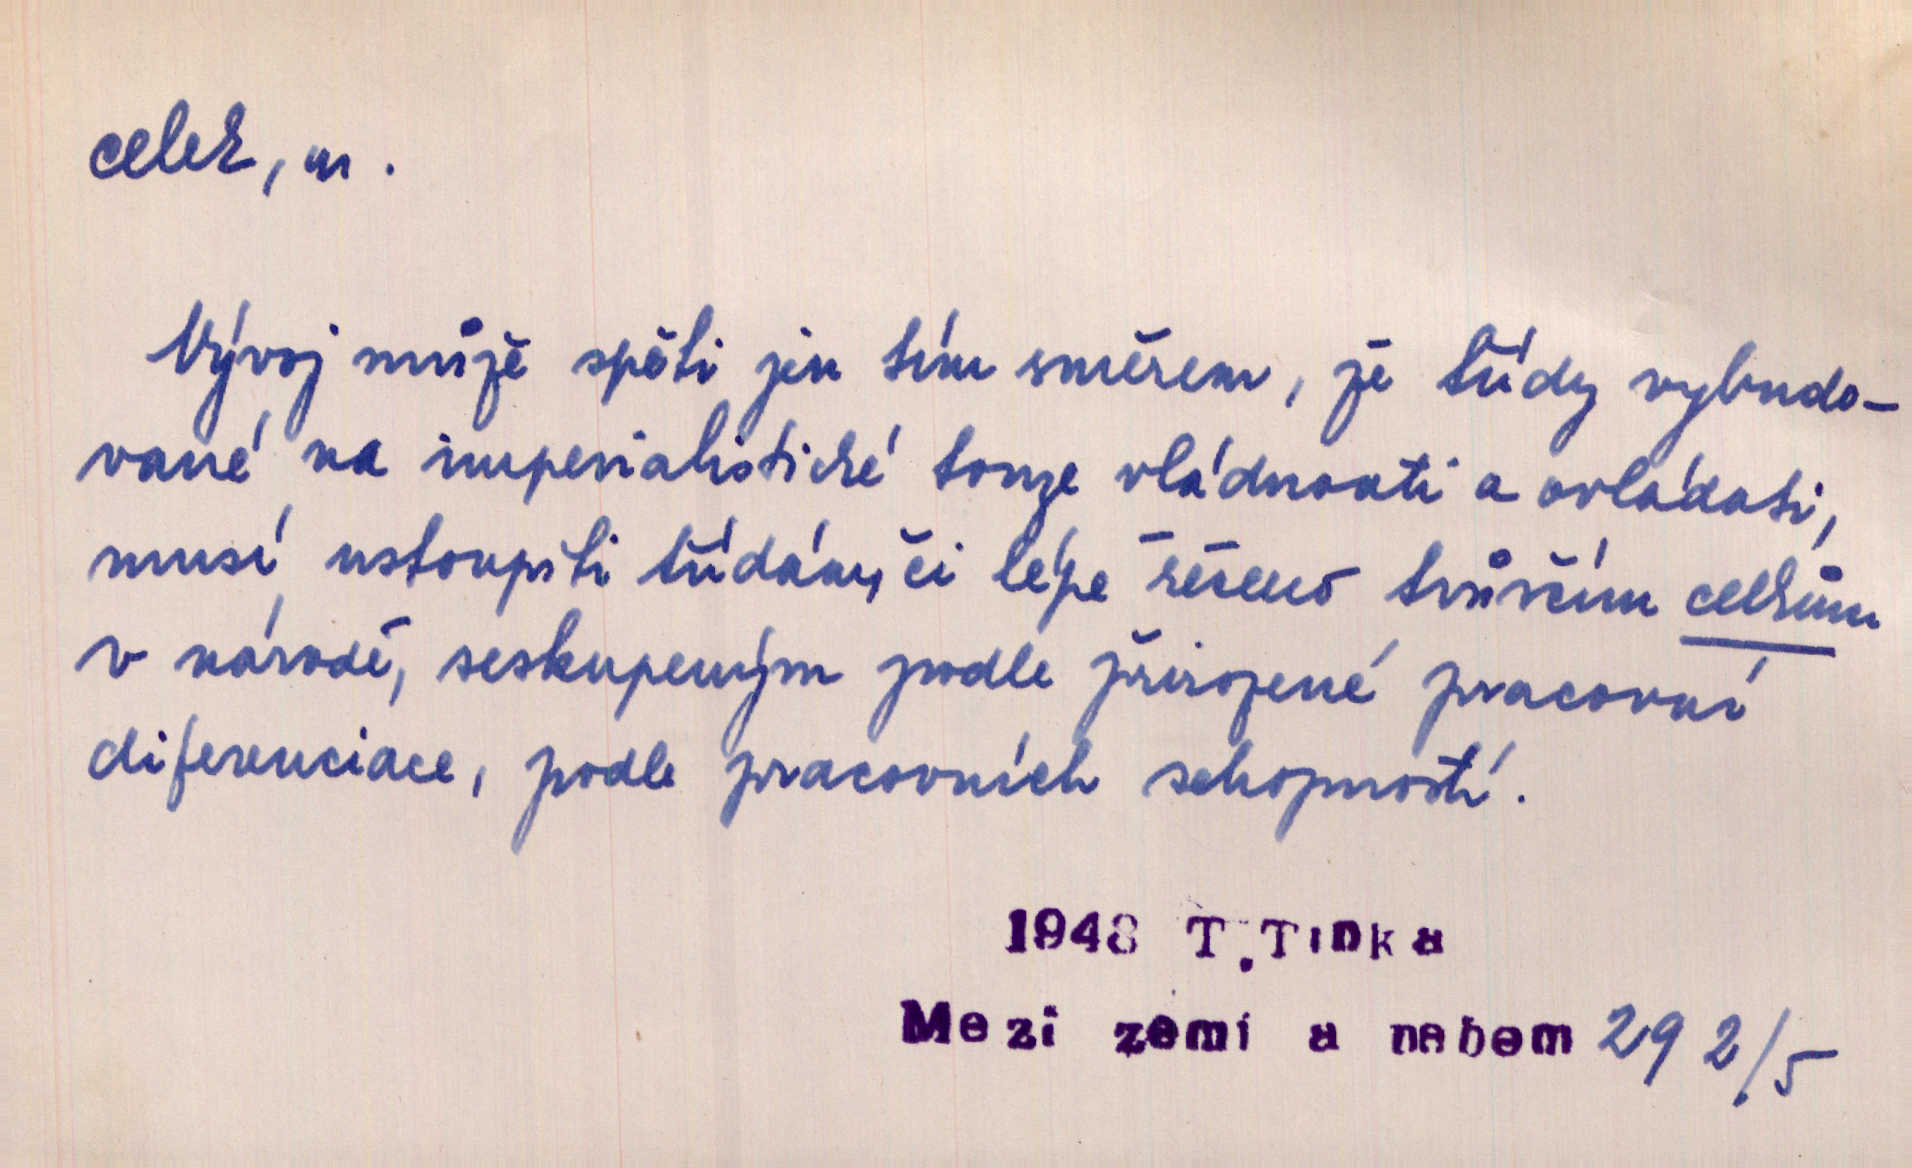 celek, m.
Vývoj může spěti jen tím směrem, že třídy vybudo-
vané na imperialistické touze vládnouti a ovládati,
musí ustoupiti třídám, či lépe řečeno tvůrčím celkům
v národě, seskupeným podle přirozené pracovní
diferenciace, podle pracovních schopností.
1948 T. Tinka
Mezi zemí a nebem 292/5